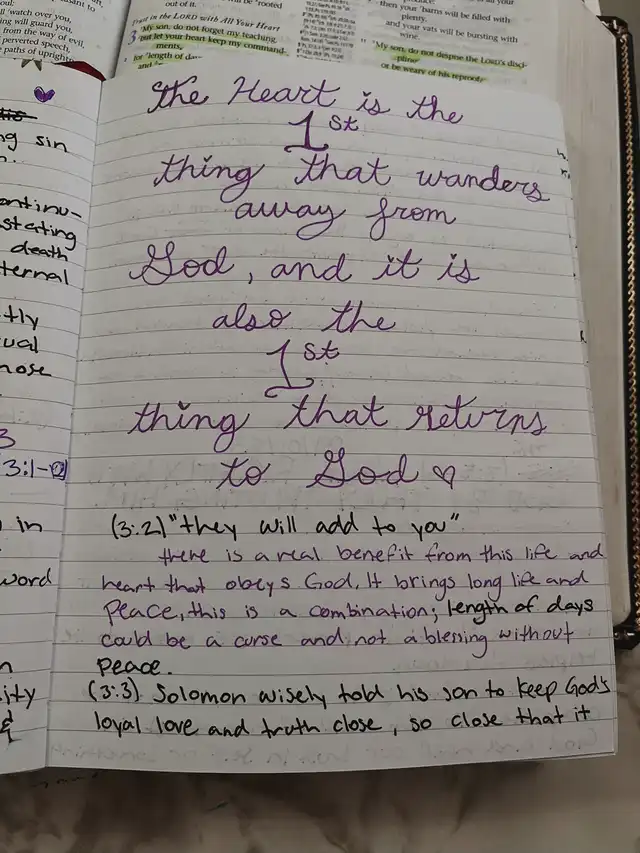 'watch over you,
ing will guard you,
from the way of evil,
perverted speech,
paths of uprightn
out of it.
be "rooted
Trust in the LORD with All Your Heart
3 "My son, do not forget my teaching,
but let your heart keep my command-
ments,
for "length of da-
and
your
then your barns will be filled with
plenty,
and your vats will be bursting with
wine.
"My son, do not despise the LORD's disci-
pline
or be weary of his reproof,
ng sin
ontinu-
stating
death
ternal
tly
ual
hose
3
3:1-
in
word
n
ity
&
the Heart is the
1st
thing that wanders
away from
God, and it is
also the
1st
thing that returns
to God ♡
(3:2) "they will add to you"
there is a real benefit from this life and
heart that obeys God. It brings long life and
peace, this is a combination; length of days
could be a curse and not a blessing without
peace.
(3:3) Solomon wisely told his son to keep God's
loyal love and truth close, so close that it